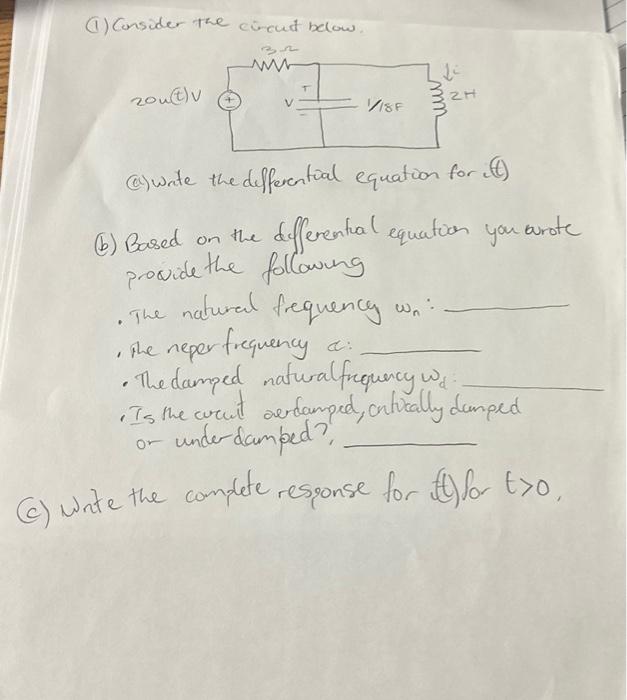 (1) Consider the circuit below.
3Ω
20u(t)V
+
+
V
-
1/18F
↓i
2H
(a) Write the differential equation for i(t)
(b) Based on the differential equation you wrote
provide the following
. The natural frequency ωn: ______
. The neper frequency α: ______
. The damped natural frequency ωd: ______
. Is the circuit overdamped, critically damped
or underdamped?, ______
(c) Write the complete response for i(t) for t>0.